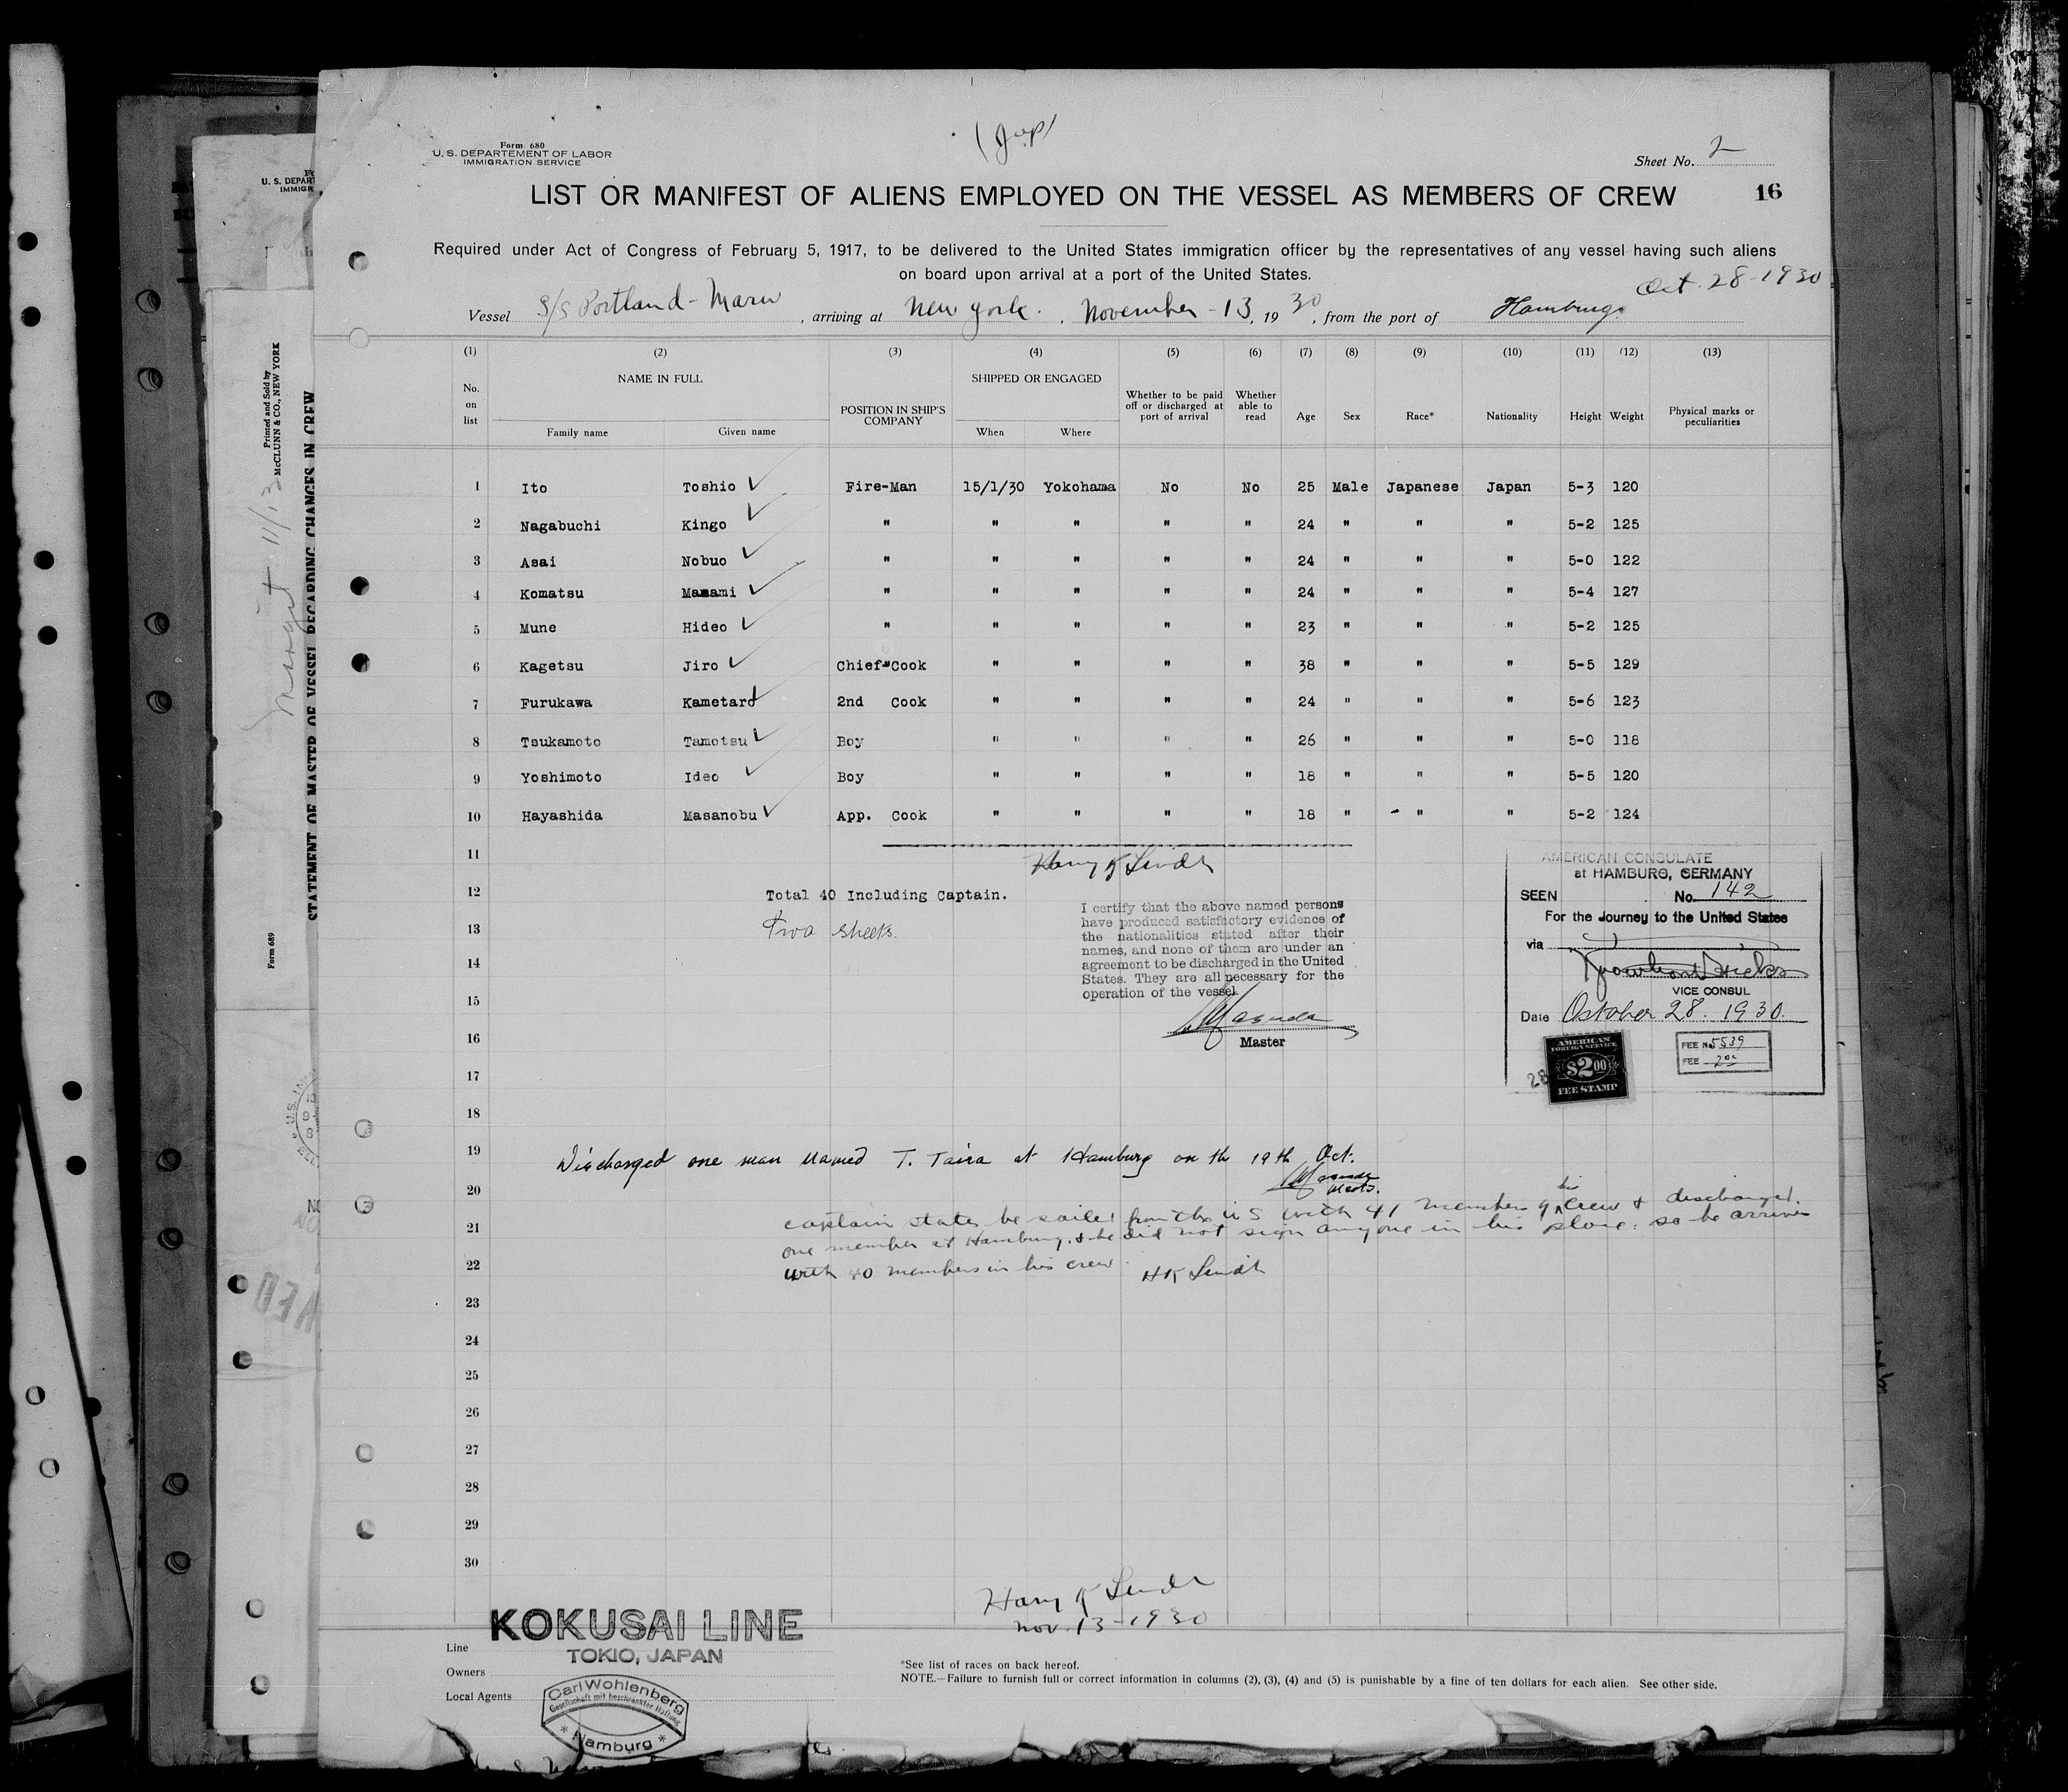 (Jap)
Form 680
U. S. DEPARTEMENT OF LABOR
IMMIGRATION SERVICE
Sheet No. 2
LIST OR MANIFEST OF ALIENS EMPLOYED ON THE VESSEL AS MEMBERS OF CREW
16
Required under Act of Congress of February 5, 1917, to be delivered to the United States immigration officer by the representatives of any vessel having such aliens
on board upon arrival at a port of the United States.
Oct. 28-1930
Vessel S/S Portland-Maru, arriving at New York. November-13, 1930, from the port of Hamburg.
(1) (2) (3) (4) (5) (6) (7) (8) (9) (10) (11) (12) (13)
No. on list NAME IN FULL Family name Given name POSITION IN SHIP'S COMPANY SHIPPED OR ENGAGED When Where Whether to be paid off or discharged at port of arrival Whether able to read Age Sex Race* Nationality Height Weight Physical marks or peculiarities
1 Ito Toshio Fire-Man 15/1/30 Yokohama No No 25 Male Japanese Japan 5-3 120
2 Nagabuchi Kingo " " " " " 24 " " " 5-2 125
3 Asai Nobuo " " " " " 24 " " " 5-0 122
4 Komatsu Masami " " " " " 24 " " " 5-4 127
5 Mune Hideo " " " " " 23 " " " 5-2 125
6 Kagetsu Jiro Chief-Cook " " " " 38 " " " 5-5 129
7 Furukawa Kametaro 2nd Cook " " " " 24 " " " 5-6 123
8 Tsukamoto Tamotsu Boy " " " " 26 " " " 5-0 118
9 Yoshimoto Ideo Boy " " " " 18 " " " 5-5 120
10 Hayashida Masanobu App. Cook " " " " 18 " " " 5-2 124
11
Harry K Lindt
12
Total 40 Including Captain.
13
Two sheets.
14
15
16
17
18
I certify that the above named persons
have produced satisfactory evidence of
the nationalities stated after their
names, and none of them are under an
agreement to be discharged in the United
States. They are all necessary for the
operation of the vessel.
Masuda
Master
AMERICAN CONSULATE
at HAMBURG, GERMANY
SEEN No. 142
For the Journey to the United States
via
VICE CONSUL
Date October 28. 1930.
AMERICAN
FOREIGN SERVICE
$2.00
FEE STAMP
28
FEE No 5539
FEE 2.00
19 Discharged one man named T. Taira at Hamburg on th 19th Oct.
20
Masuda
Mast.
21 captain states he sailed from the US with 41 members of his crew & discharged
one member at Hamburg, & he did not sign anyone in his place, so he arrives
22 with 40 members in his crew. HK Lindt
23
24
25
26
27
28
29
30
Harry K Lindt
Nov. 13-1930
KOKUSAI LINE
TOKIO, JAPAN
Line
Owners
Local Agents
Carl Wohlenberg
Gesellschaft mit beschränkter Haftung
* Hamburg *
*See list of races on back hereof.
NOTE.—Failure to furnish full or correct information in columns (2), (3), (4) and (5) is punishable by a fine of ten dollars for each alien. See other side.
U. S. DEPAR
IMMIGR
Printed and Sold by
McCLUNN & CO., NEW YORK
STATEMENT OF MASTER OF VESSEL REGARDING CHANGES IN CREW
11/13
Form 689